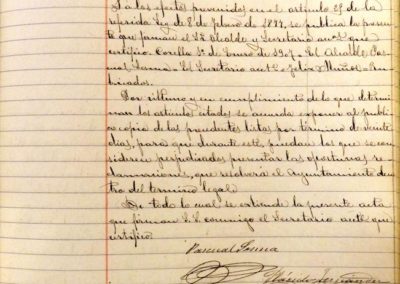 y á los efectos prevenidos en el artículo 29 de la
referida Ley de 8 Febrero de 1877, se publica la presen-
te que firman el Sr. Alcalde y Secretario acctl. que
certifico. Corella 1º de Enero de 1907 = El Alcalde Pas-
cual = El Secretario acctl = Felix Muñoz = Ru-
bricados.
Por ultimo y en cumplimiento de lo que determi-
nan los artículos citados se acuerda exponer al público
copia de las precedentes listas por término de veinte
dias, para que durante este puedan los que se con-
sideren perjudicados presentar las oportunas re-
clamaciones, que resolverá el Ayuntamiento den-
tro del termino legal.
De todo lo cual se extiende la presente acta
que firman S.S. conmigo el Secretario acctl. que
certifico.
Pascual
Plácido Fernández